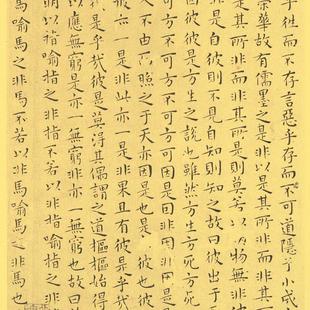 乎往而不存言惡乎存而不可道隱乎小成
榮華故有儒墨之是非以是其所非而非其
是其所非而非其所是則莫若以明物無非
是自彼則不見自知則知之故曰彼出
因彼彼是方生之說也雖然方生方死方死
方可方不可方不可方可因是因非因非
人不由而照之于天亦因是也是亦彼也彼
彼亦一是非此亦一是非果且有彼是乎哉
是乎哉彼是莫得其偶謂之道樞樞始得
以應無窮是亦一無窮非亦一無窮也故曰
明以指喻指之非指不若以非指喻指之非
馬喻馬之非馬不若以非馬喻馬之非馬也